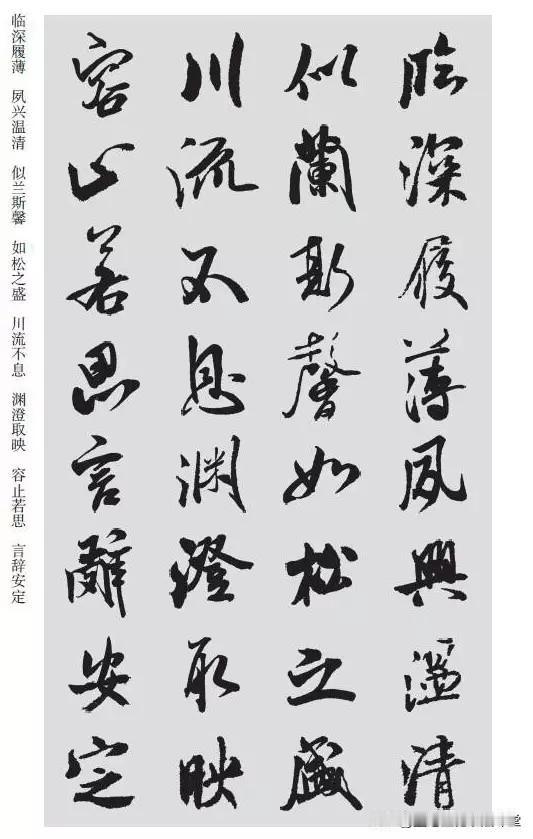 臨深履薄夙興溫清
似蘭斯馨如松之盛
川流不息淵澄取映
容止若思言辭安定
临深履薄 夙兴温清 似兰斯馨 如松之盛 川流不息 渊澄取映 容止若思 言辞安定